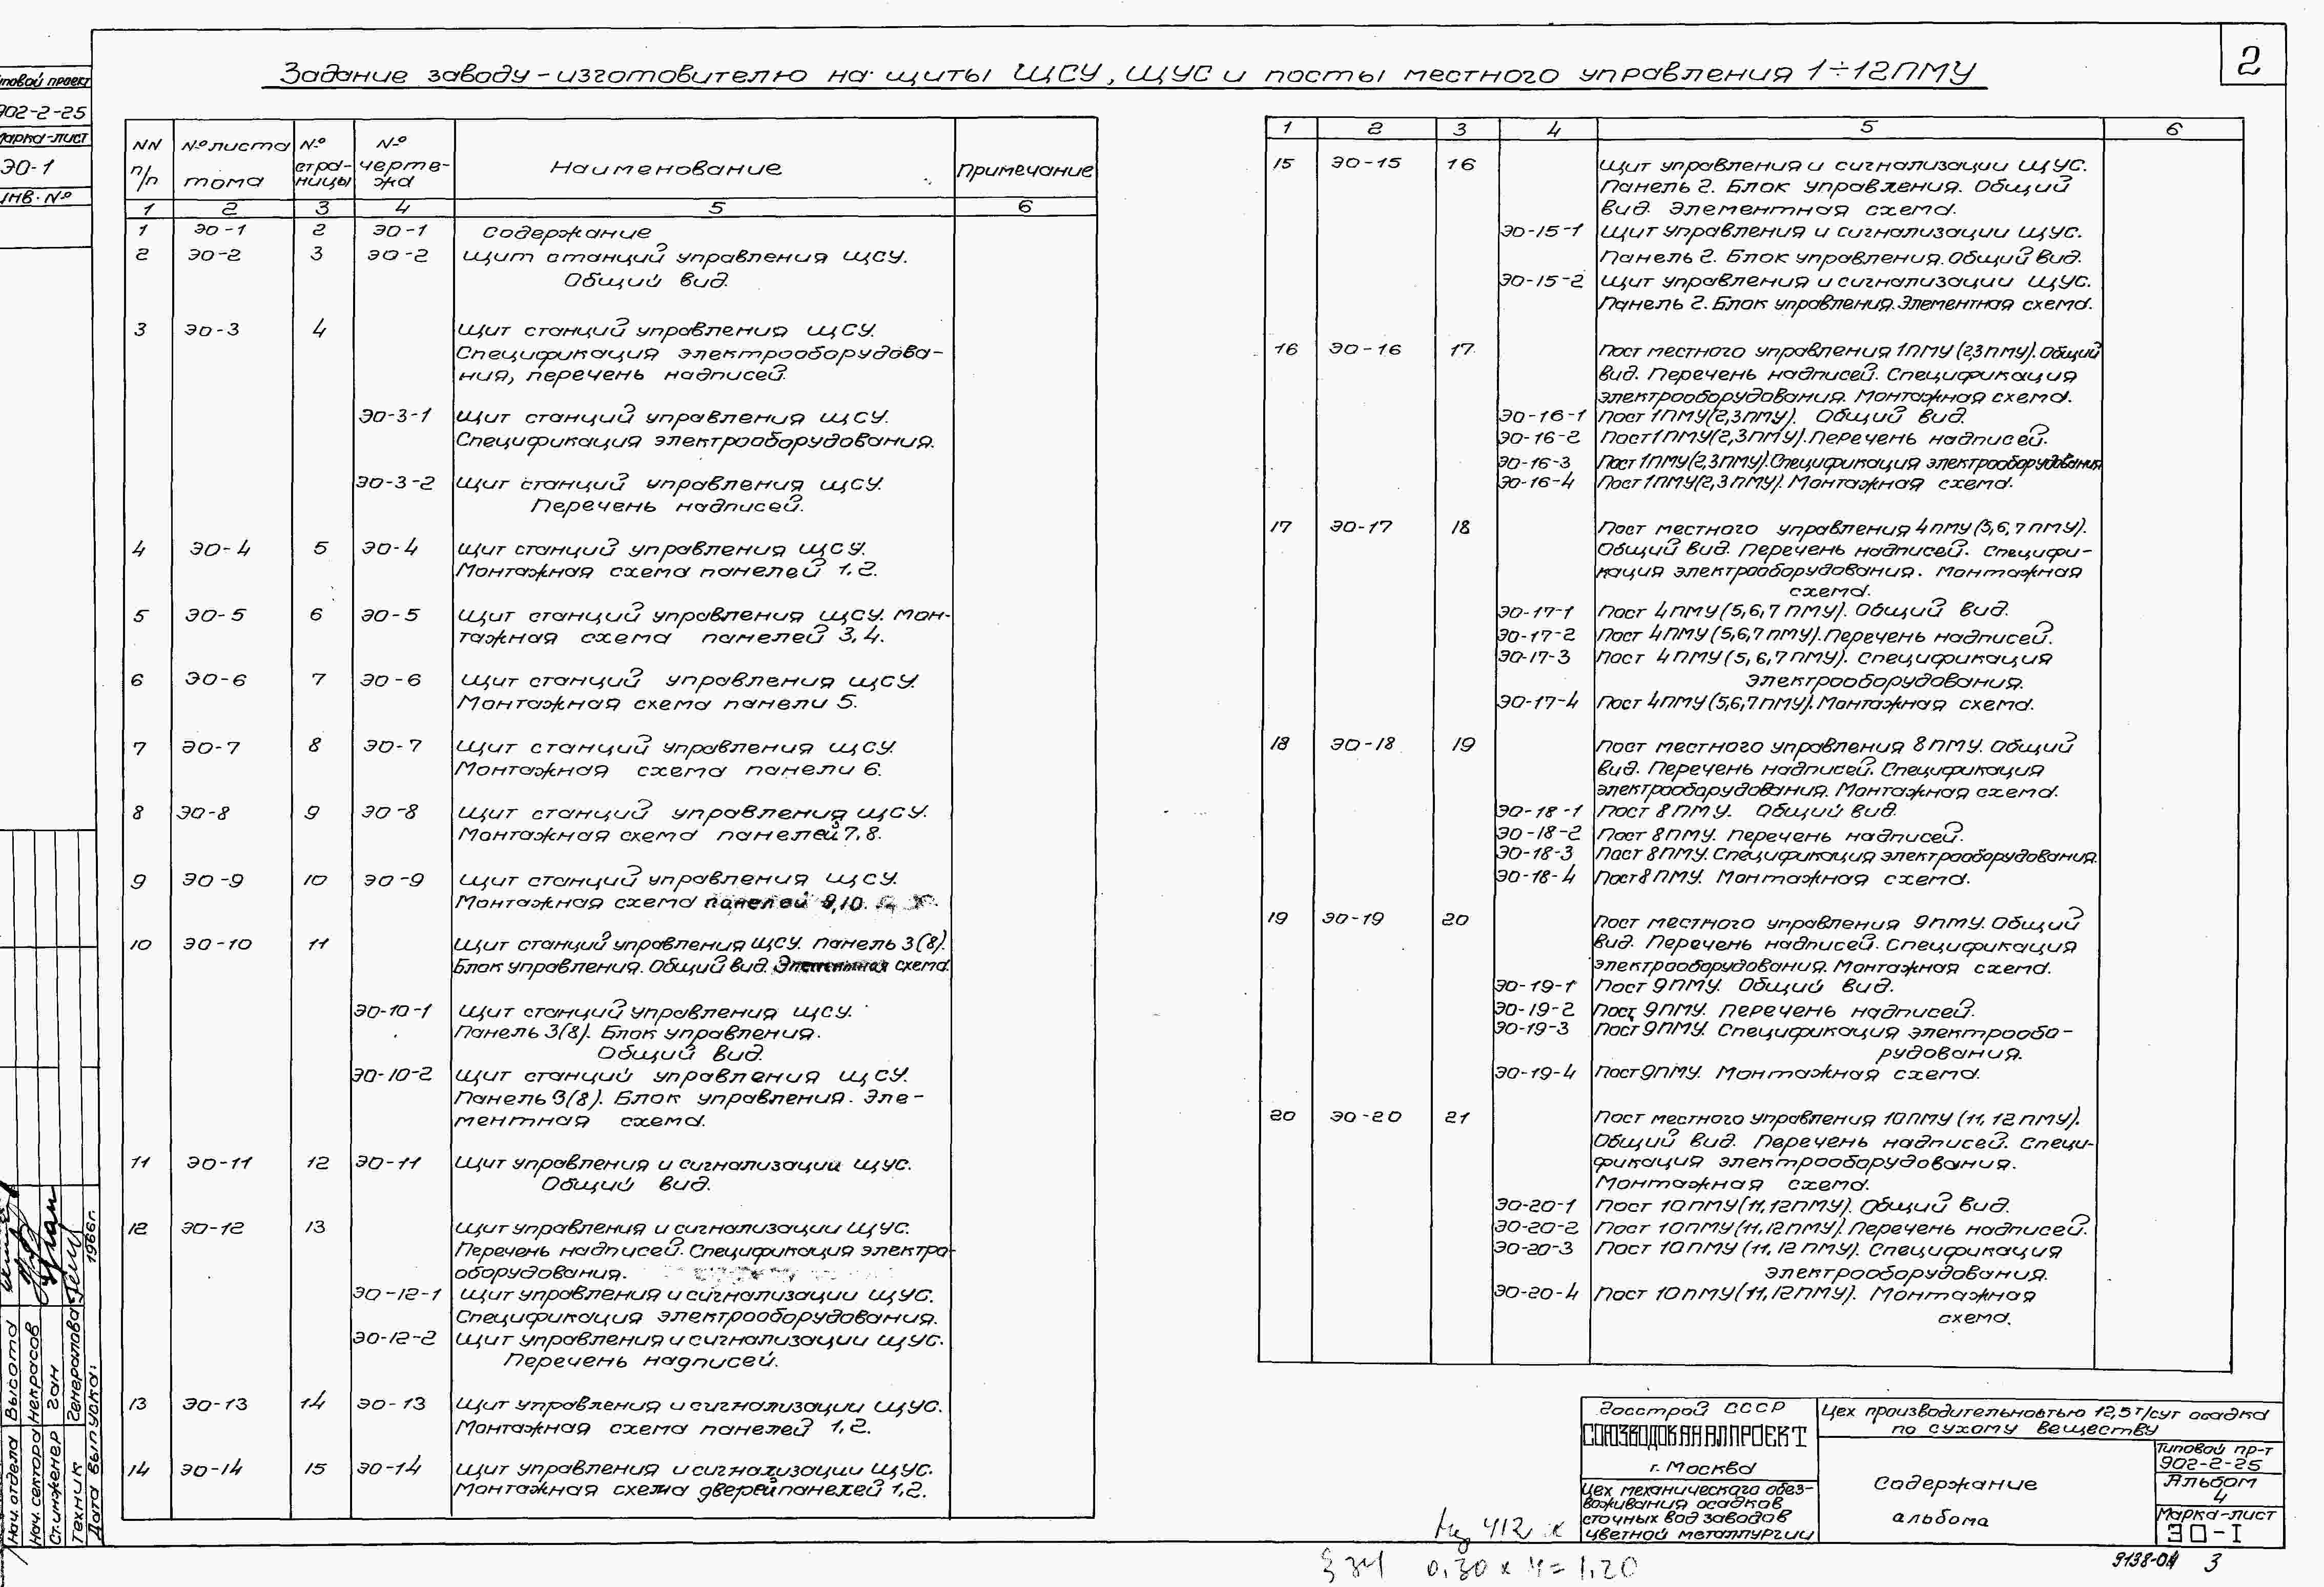 2
Задание заводу-изготовителю на щиты ЩСУ, ЩУС и посты местного управления 1÷12ПМУ
Типовой проект
902-2-25
Марка-лист
ЭО-1
ИНВ. №
NN п/п | № листа тома | № страницы | № чертежа | Наименование | Примечание
1 2 3 4 5 6
1 ЭО-1 2 ЭО-1 Содержание
2 ЭО-2 3 ЭО-2 Щит станций управления ЩСУ.
Общий вид.
3 ЭО-3 4 Щит станций управления ЩСУ.
Спецификация электрооборудова-
ния, перечень надписей.
ЭО-3-1 Щит станций управления ЩСУ.
Спецификация электрооборудования.
ЭО-3-2 Щит станций управления ЩСУ.
Перечень надписей.
4 ЭО-4 5 ЭО-4 Щит станций управления ЩСУ.
Монтажная схема панелей 1,2.
5 ЭО-5 6 ЭО-5 Щит станций управления ЩСУ. Мон-
тажная схема панелей 3,4.
6 ЭО-6 7 ЭО-6 Щит станций управления ЩСУ.
Монтажная схема панели 5.
7 ЭО-7 8 ЭО-7 Щит станций управления ЩСУ.
Монтажная схема панели 6.
8 ЭО-8 9 ЭО-8 Щит станций управления ЩСУ.
Монтажная схема панелей 7,8.
9 ЭО-9 10 ЭО-9 Щит станций управления ЩСУ.
Монтажная схема панелей 9,10.
10 ЭО-10 11 Щит станций управления ЩСУ. Панель 3(8).
Блок управления. Общий вид. Элементная схема.
ЭО-10-1 Щит станций управления ЩСУ.
Панель 3(8). Блок управления.
Общий вид.
ЭО-10-2 Щит станций управления ЩСУ.
Панель 3(8). Блок управления. Эле-
ментная схема.
11 ЭО-11 12 ЭО-11 Щит управления и сигнализации ЩУС.
Общий вид.
12 ЭО-12 13 Щит управления и сигнализации ЩУС.
Перечень надписей. Спецификация электро-
оборудования.
ЭО-12-1 Щит управления и сигнализации ЩУС.
Спецификация электрооборудования.
ЭО-12-2 Щит управления и сигнализации ЩУС.
Перечень надписей.
13 ЭО-13 14 ЭО-13 Щит управления и сигнализации ЩУС.
Монтажная схема панелей 1,2.
14 ЭО-14 15 ЭО-14 Щит управления и сигнализации ЩУС.
Монтажная схема дверей панелей 1,2.
1 2 3 4 5 6
15 ЭО-15 16 Щит управления и сигнализации ЩУС.
Панель 2. Блок управления. Общий
вид. Элементная схема.
ЭО-15-1 Щит управления и сигнализации ЩУС.
Панель 2. Блок управления. Общий вид.
ЭО-15-2 Щит управления и сигнализации ЩУС.
Панель 2. Блок управления. Элементная схема.
16 ЭО-16 17 Пост местного управления 1ПМУ (2,3ПМУ). Общий
вид. Перечень надписей. Спецификация
электрооборудования. Монтажная схема.
ЭО-16-1 Пост 1ПМУ(2,3ПМУ). Общий вид.
ЭО-16-2 Пост 1ПМУ(2,3ПМУ). Перечень надписей.
ЭО-16-3 Пост 1ПМУ(2,3ПМУ). Спецификация электрооборудования
ЭО-16-4 Пост 1ПМУ(2,3ПМУ). Монтажная схема.
17 ЭО-17 18 Пост местного управления 4ПМУ (5,6,7ПМУ).
Общий вид. Перечень надписей. Специфи-
кация электрооборудования. Монтажная
схема.
ЭО-17-1 Пост 4ПМУ(5,6,7ПМУ). Общий вид.
ЭО-17-2 Пост 4ПМУ(5,6,7ПМУ). Перечень надписей.
ЭО-17-3 Пост 4ПМУ(5,6,7ПМУ). Спецификация
электрооборудования.
ЭО-17-4 Пост 4ПМУ(5,6,7ПМУ). Монтажная схема.
18 ЭО-18 19 Пост местного управления 8ПМУ. Общий
вид. Перечень надписей. Спецификация
электрооборудования. Монтажная схема.
ЭО-18-1 Пост 8ПМУ. Общий вид.
ЭО-18-2 Пост 8ПМУ. Перечень надписей.
ЭО-18-3 Пост 8ПМУ. Спецификация электрооборудования.
ЭО-18-4 Пост 8ПМУ. Монтажная схема.
19 ЭО-19 20 Пост местного управления 9ПМУ. Общий
вид. Перечень надписей. Спецификация
электрооборудования. Монтажная схема.
ЭО-19-1 Пост 9ПМУ. Общий вид.
ЭО-19-2 Пост 9ПМУ. Перечень надписей.
ЭО-19-3 Пост 9ПМУ. Спецификация электрообо-
рудования.
ЭО-19-4 Пост 9ПМУ. Монтажная схема.
20 ЭО-20 21 Пост местного управления 10ПМУ (11,12ПМУ).
Общий вид. Перечень надписей. Специ-
фикация электрооборудования.
Монтажная схема.
ЭО-20-1 Пост 10ПМУ(11,12ПМУ). Общий вид.
ЭО-20-2 Пост 10ПМУ(11,12ПМУ). Перечень надписей.
ЭО-20-3 Пост 10ПМУ(11,12ПМУ). Спецификация
электрооборудования.
ЭО-20-4 Пост 10ПМУ(11,12ПМУ). Монтажная
схема.
Нач. отдела Высота
Нач. сектора Некрасов
Ст. инженер Ган
Техник Генералова
Дата выпуска: 1966г.
Госстрой СССР
СОЮЗВОДОКАНАЛПРОЕКТ
г. Москва
Цех механического обез-
воживания осадков
сточных вод заводов
цветной металлургии
Цех производительностью 12,5т/сут осадка
по сухому веществу
Содержание
альбома
Типовой пр-т
902-2-25
Альбом
4
Марка-лист
ЭО-I
412 х
§ 34 0,30 х 4 = 1,20
9138-04 3